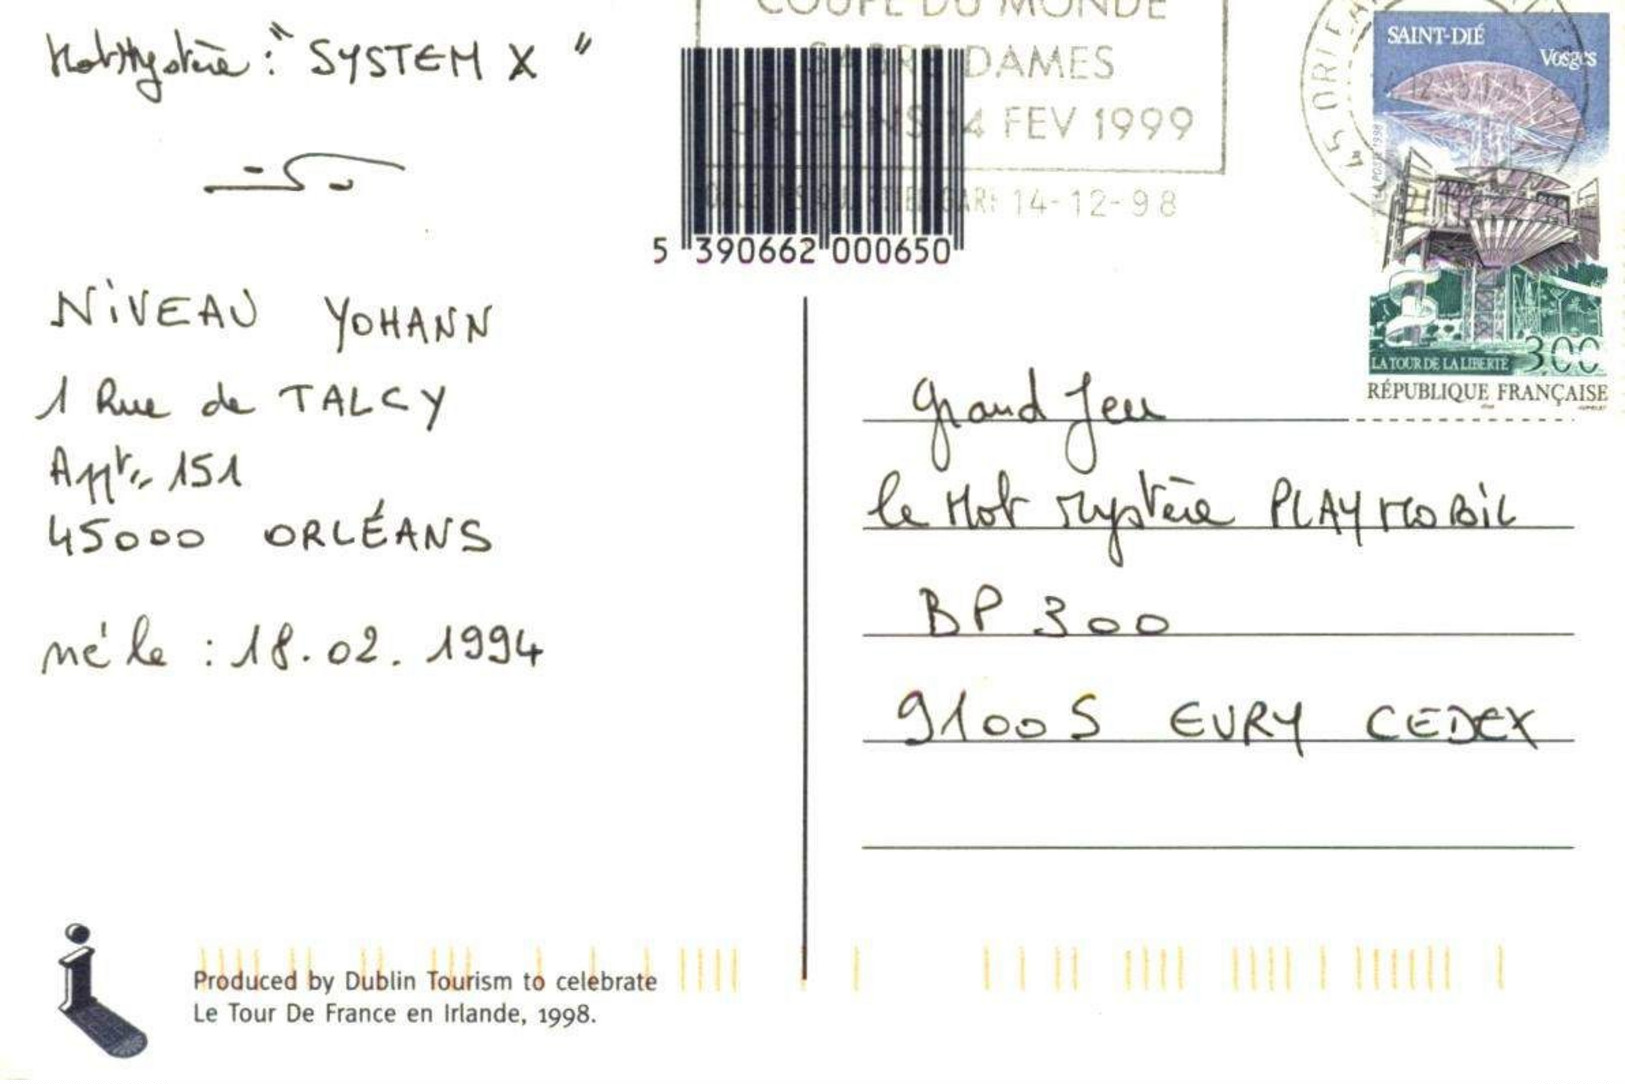 Mot Mystère : "SYSTEM X"
NiVEAU YOHANN
1 Rue de TALCY
Appt. 151
45000 ORLÉANS
né le : 18.02.1994
COUPE DU MONDE
SABRE DAMES
ORLEANS 14 FEV 1999
GARE 14-12-98
5 390662 000650
45 ORLEA
SAINT-DIÉ
Vosges
LA POSTE 1998
LA TOUR DE LA LIBERTÉ 3,00
RÉPUBLIQUE FRANÇAISE
Grand Jeu
le Mot Mystère PLAYMOBiL
BP 300
91005 EVRY CEDEX
Produced by Dublin Tourism to celebrate
Le Tour De France en Irlande, 1998.